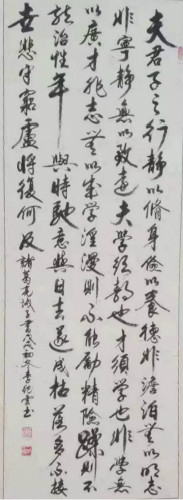 夫君子之行靜以脩身儉以養德非澹泊無以明志
非寧靜無以致遠夫學須靜也才須學也非學無
以廣才非志無以成學淫漫則不能勵精險躁則不
能治性年與時馳意與日去遂成枯落多不接
世悲守窮廬將復何及 諸葛亮誡子書 初冬李